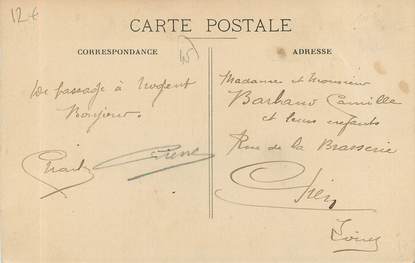 12 €
CARTE POSTALE
CORRESPONDANCE
ADRESSE
De passage à Nogent
Bonjour.
Madame et Monsieur
Barbaud Camille
et leurs enfants
Rue de la Brasserie
Gien
Loiret